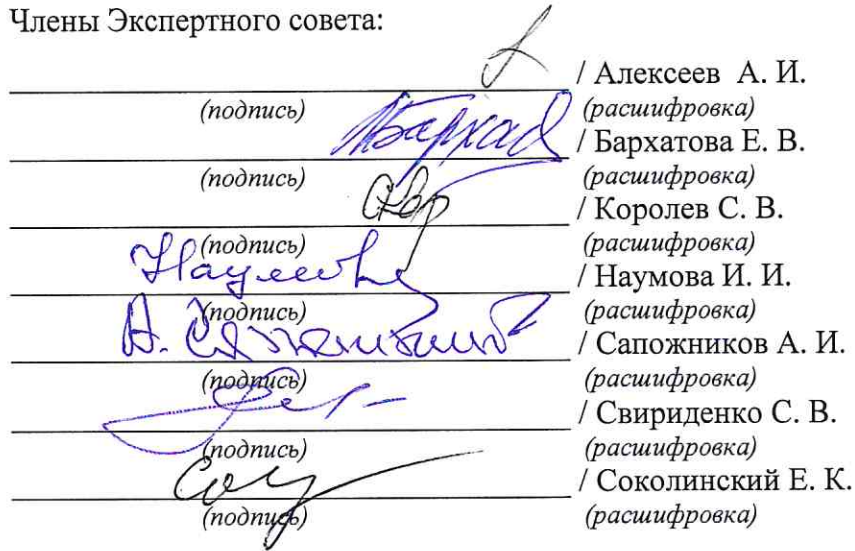 Члены Экспертного совета:
/ Алексеев А. И.
(подпись) (расшифровка)
/ Бархатова Е. В.
(подпись) (расшифровка)
/ Королев С. В.
(подпись) (расшифровка)
Наумова / Наумова И. И.
(подпись) (расшифровка)
/ Сапожников А. И.
(подпись) (расшифровка)
/ Свириденко С. В.
(подпись) (расшифровка)
/ Соколинский Е. К.
(подпись) (расшифровка)